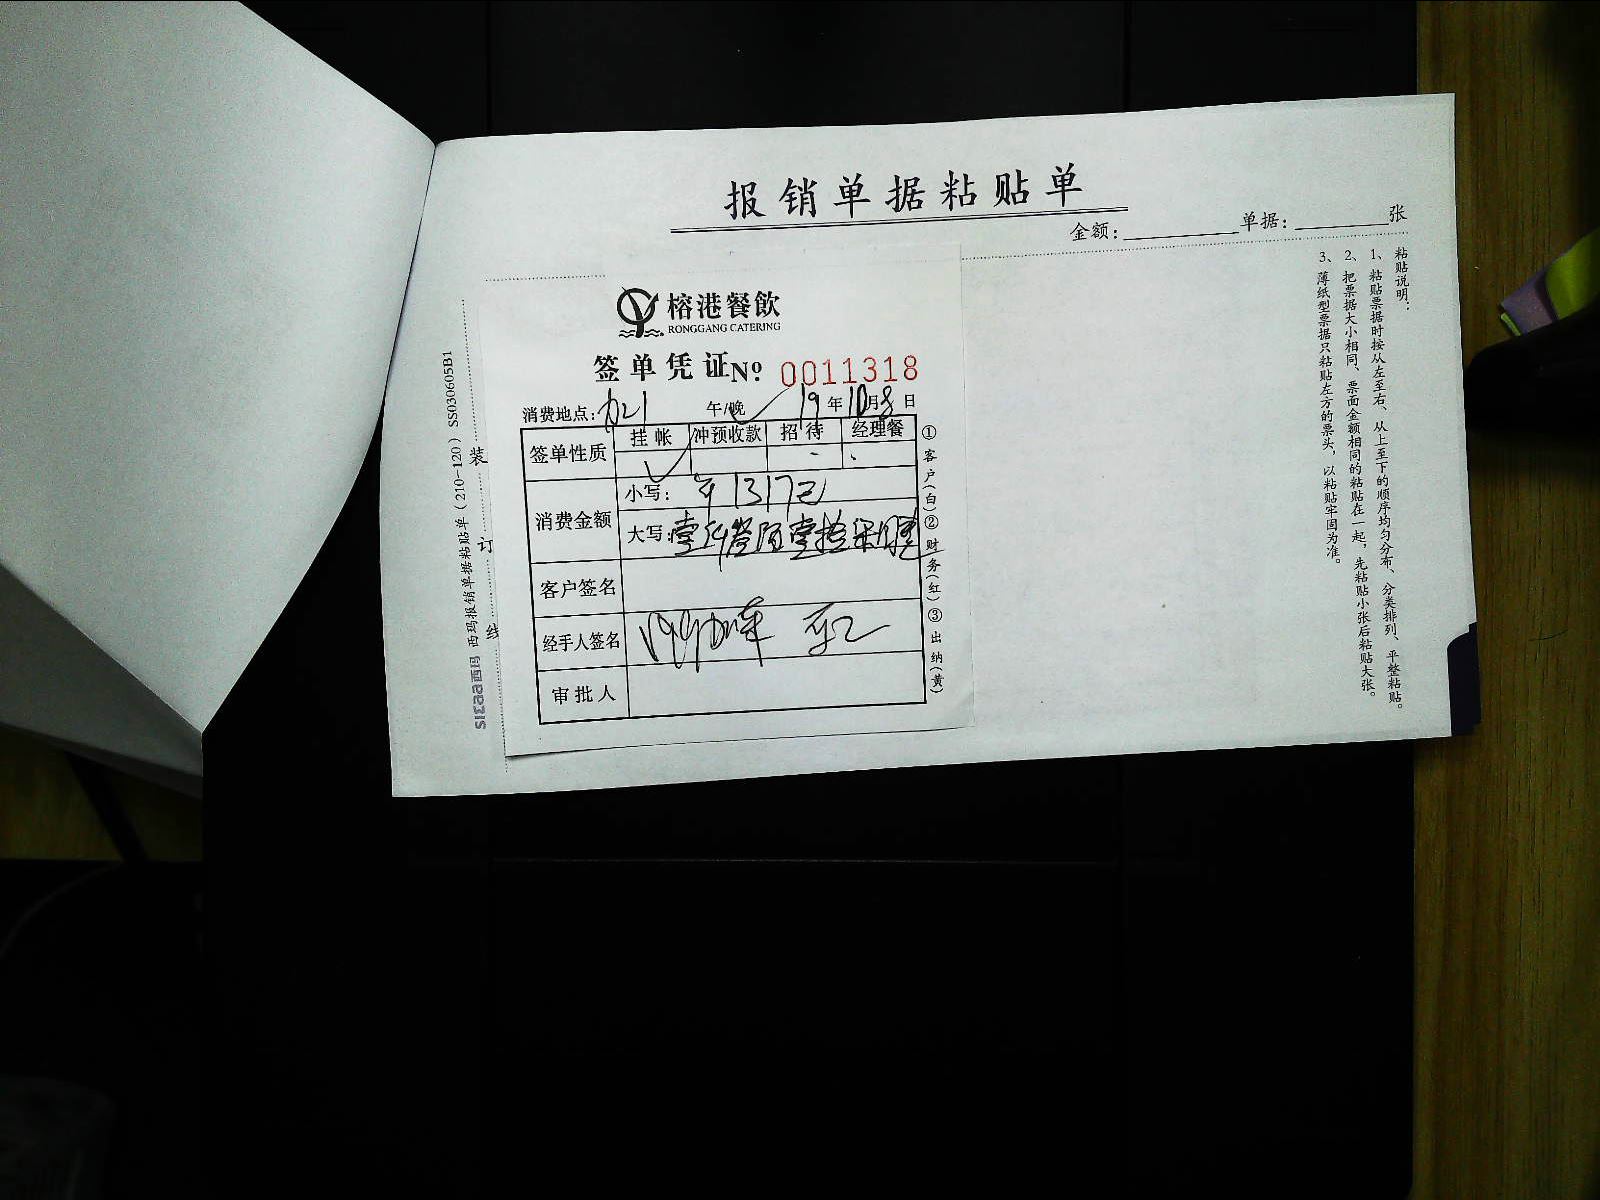 报销单据粘贴单
金额：
单据：
张
榕港餐飲
RONGGANG CATERING
签单凭证 No. 0011318
消费地点：
午/晚 19年10月8日
签单性质
挂帐 冲预收款 招待 经理餐
消费金额
小写：¥1317元
大写：
客户签名
经手人签名
审批人
①客户(白)②财务(红)③出纳(黄)
装订线
sımaa西玛 西玛报销单据粘贴单（210-120）SS030605B1
粘贴说明：
1、粘贴票据时按从左至右、从上至下的顺序均匀分布、分类排列、平整粘贴。
2、把票据大小相同、票面金额相同的粘贴在一起，先粘贴小张后粘贴大张。
3、薄纸型票据只粘贴左方的票头，以粘贴牢固为准。